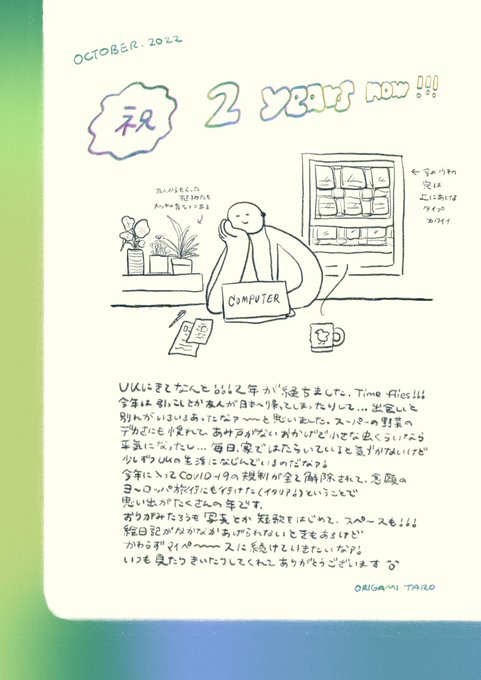 OCTOBER. 2022
祝 2 years now!!!
友人からもらった
植物たち
めっちゃ育ってる
←今のウチの
窓は
上にあける
タイプ
カワイイ
COMPUTER
UKにきてなんと!!!2年が経ちました。Time flies!!!
今年は引っこしとか友人が日本へ帰ってしまったりして…出会いと
別れがいろいろあったなァ〜〜と思いました。スーパーの野菜の
デカさにも慣れて、あみ戸がないおかげで小さな虫くらいなら
平気になったし…毎日、家ではたらいていると気がつかないけど
少しずつUKの生活になじんでいるのだな?!
今年に入ってCOVID-19の規制が全て解除されて、念願の
ヨーロッパ旅行にも行けた(イタリア!)ということで
思い出がたくさんの年です。
おりがみたろうも写真とか短歌をはじめて、スペースも!!!
絵日記がなかなかあげられないときもあるけど
かわらずマイペ〜〜スに続けていきたいな?!
いつも見たりきいたりしてくれてありがとうございます
ORIGAMI TARO